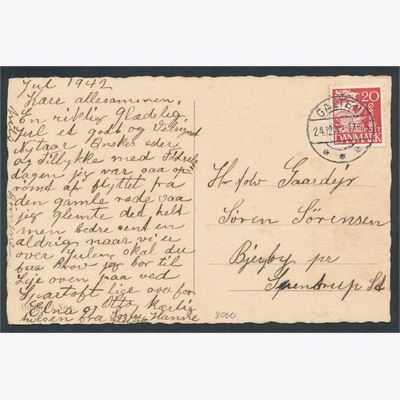 Jul 1942
Kære allesammen,
En rigtig Glædelig
Jul et godt og Velsignet
Nytaar Ønskes eder
og Tillykke med Fødsels
dagen jeg var saa op
romt af flyttet fra
den gamle rede saa
jeg glemte det helt
men bedre sent en
aldrig naar vi er
over Julen, skal du
faa Brev jeg bor til
Leje oven paa ved
lige over for
Elna og Otto, Kærlig
hilsen fra Hanne
GALTEN
24.12.42
20
DANMARK
Hr Gaardejr
Søren Sørensen
Bjerby pr
Spentrup St
8000